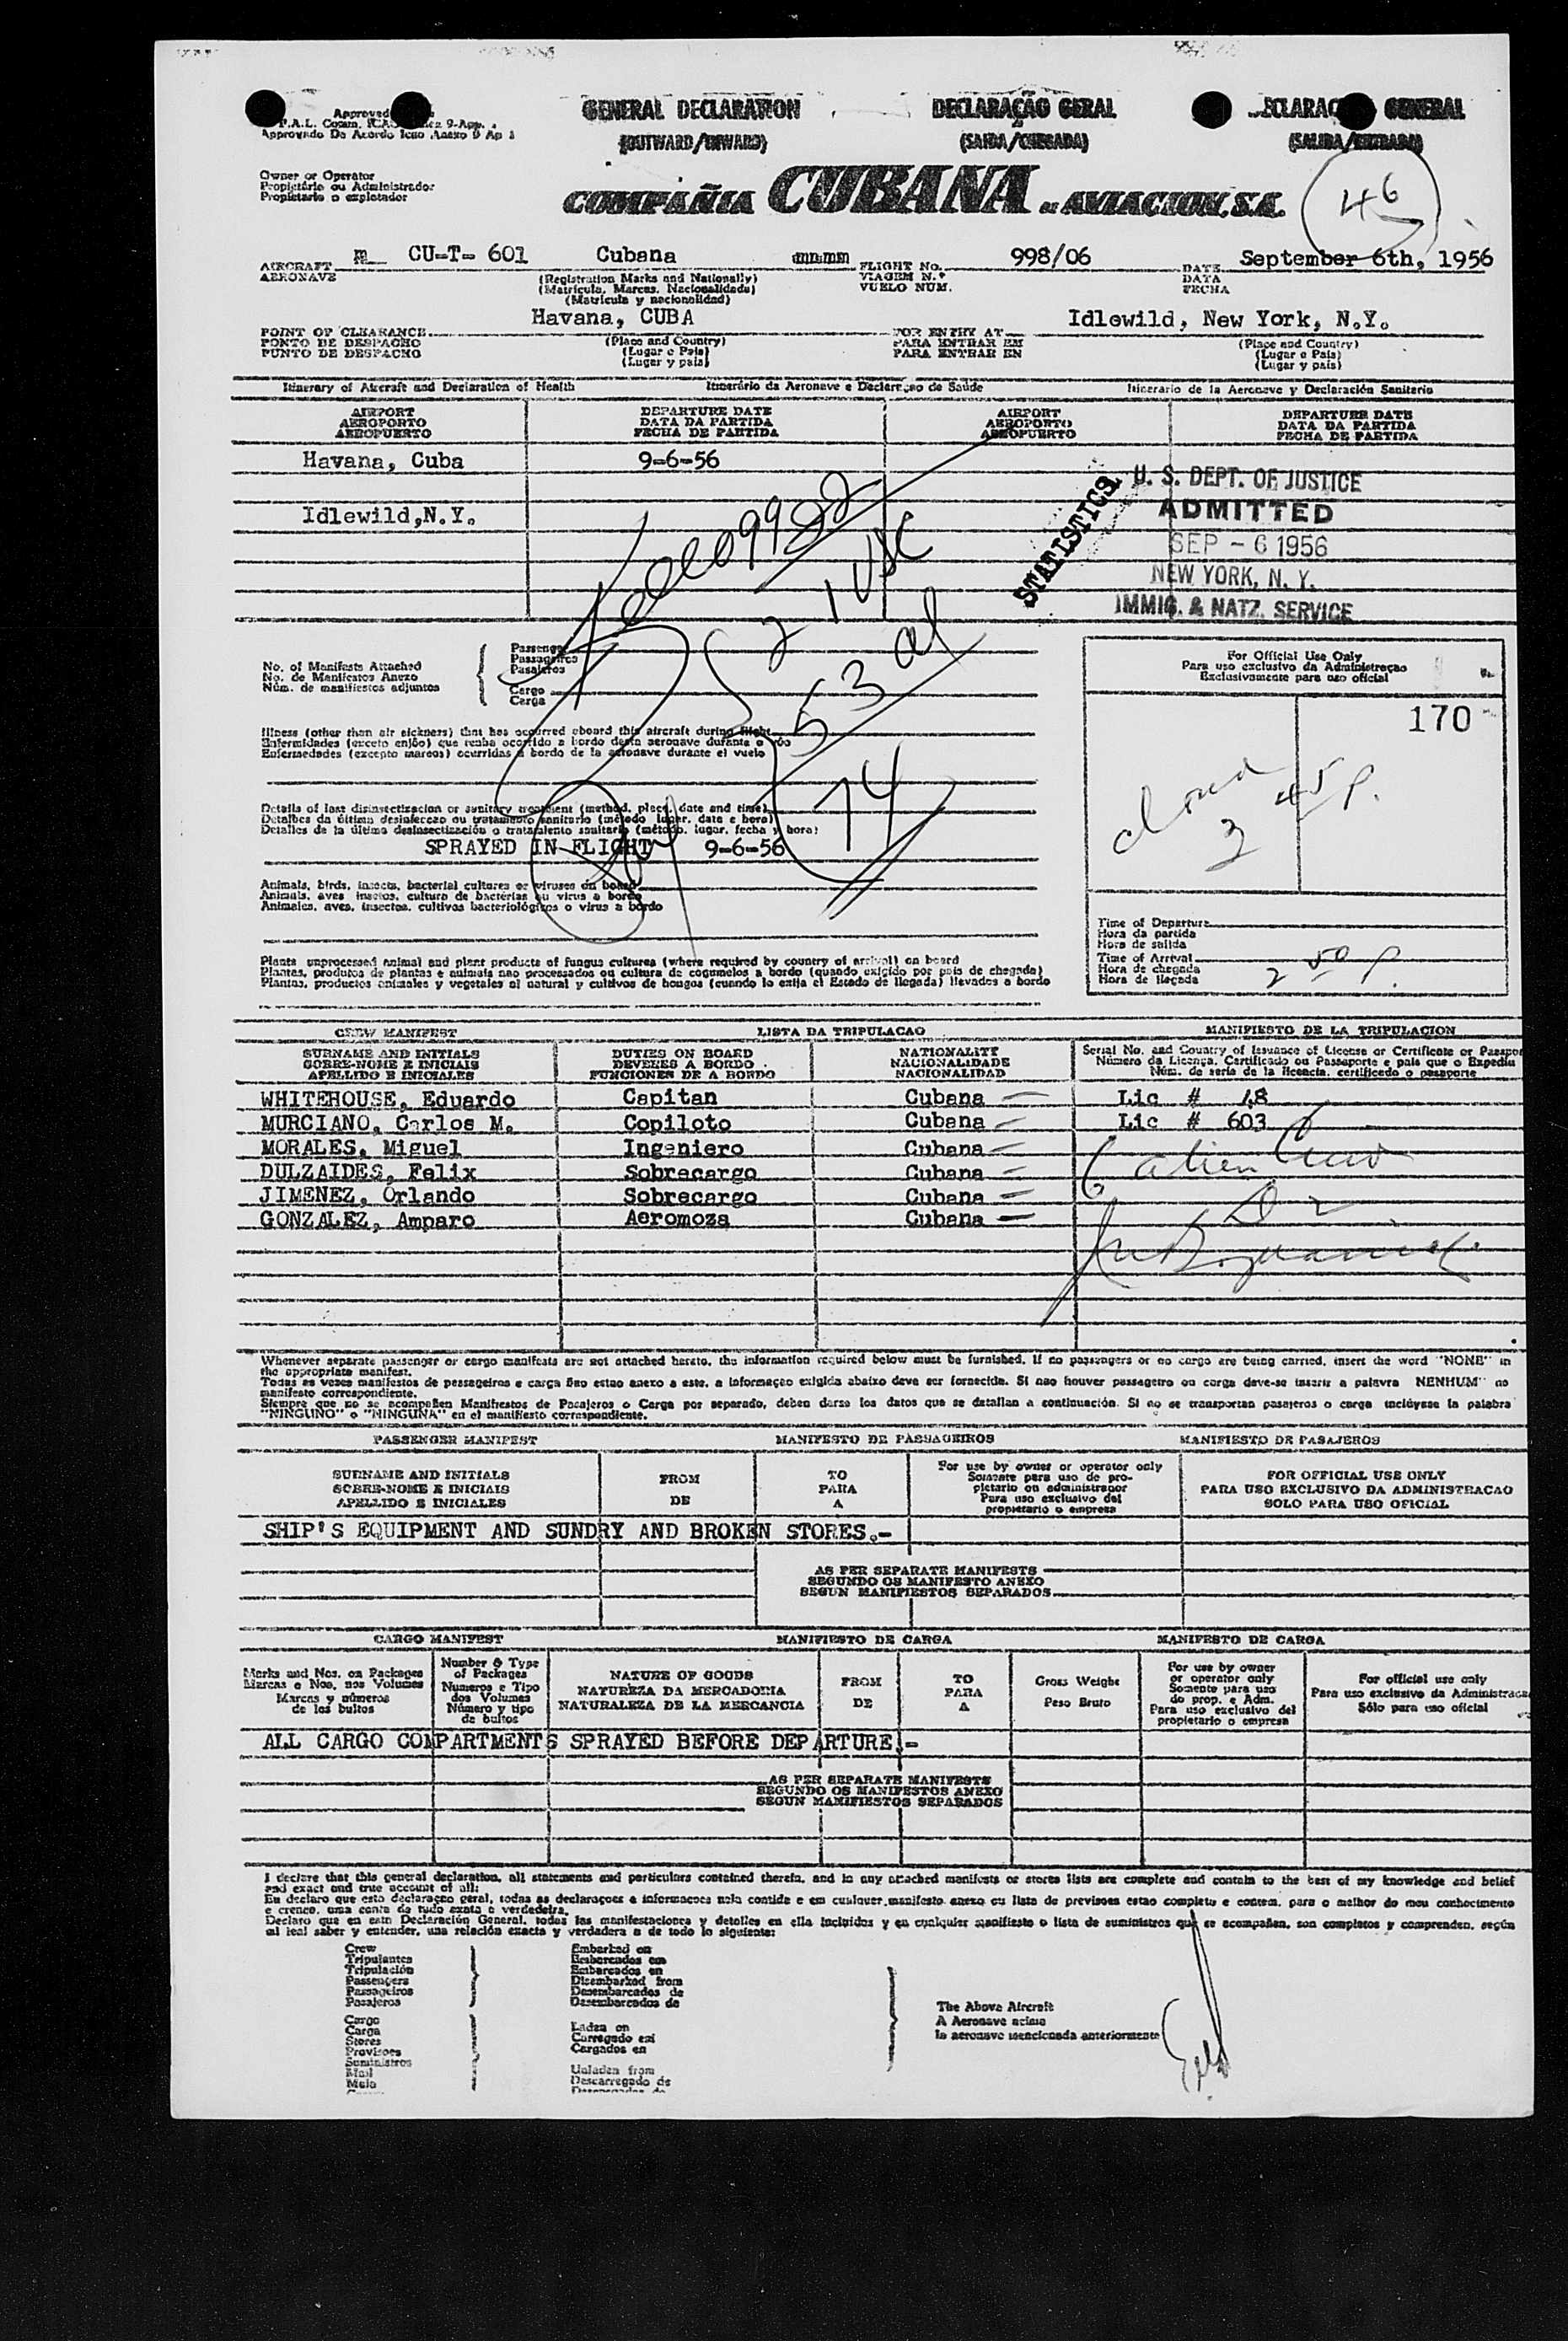 GENERAL DECLARATION
(OUTWARD/INWARD)
DECLARAÇÃO GERAL
(SAIDA/CHEGADA)
GENERAL
(SALIDA/ENTRADA)
Approvado De Acordo Icao Anexo 9 Ap
Owner or Operator
Propietário ou Administrador
Propietario o explotador
COMPAÑIA CUBANA DE AVIACION, S.A.
46
AIRCRAFT m CU-T- 601 Cubana FLIGHT No. 998/06 DATE September 6th, 1956
AERONAVE (Registration Marks and Nationally) VIAGEM N.º DATA
(Matricula, Marcas, Nacionalidade) VUELO NUM. FECHA
(Matricula y nacionalidad)
POINT OF CLEARANCE Havana, CUBA FOR ENTRY AT Idlewild, New York, N.Y.
PONTO DE DESPACHO (Place and Country) PARA ENTRAR EM (Place and Country)
PUNTO DE DESPACHO (Lugar e Pais) PARA ENTRAR EN (Lugar e Pais)
(Lugar y pais) (Lugar y pais)
Itinerary of Aircraft and Declaration of Health Itinerário da Aeronave e Declaraçao de Saude Itinerario de la Aeronave y Declaración Sanitaria
AIRPORT DEPARTURE DATE AIRPORT DEPARTURE DATE
AEROPORTO DATA DA PARTIDA AEROPORTO DATA DA PARTIDA
AEROPUERTO FECHA DE PARTIDA AEROPUERTO FECHA DE PARTIDA
Havana, Cuba 9-6-56
Idlewild,N.Y.
STATISTICS
U. S. DEPT. OF JUSTICE
ADMITTED
SEP - 6 1956
NEW YORK, N. Y.
IMMIG. & NATZ. SERVICE
21 USC
53 al
74
No. of Manifests Attached
No. de Manifestos Anexo
Núm. de manifiestos adjuntos
Passengers
Passageiros
Pasajeros
Cargo
Carga
For Official Use Only
Para uso exclusivo da Administraçao
Exclusivamente para uso oficial
170
3 45 P.
Illness (other than air sickness) that has occurred aboard this aircraft during flight
Enfermidades (exceto enjôo) que tenha ocorrido a bordo desta aeronave durante o vôo
Enfermedades (excepto mareos) ocurridas a bordo de la aeronave durante el vuelo
Details of last disinsectizacion or sanitary treatment (method, place, date and time)
Detalhes da última desinfeccao ou tratamento sanitario (método lugar, data e hora)
Detalles de la última desinsectización o tratamiento sanitario (método, lugar, fecha y hora)
SPRAYED IN FLIGHT 9-6-56
Animals, birds, insects, bacterial cultures or viruses on board
Animais, aves insetos, cultura de bactérias ou virus a bordo
Animales, aves, insectos, cultivos bacteriológicos o virus a bordo
Time of Departure
Hora da partida
Hora de salida
Time of Arrival
Hora de chegada 2 50 P.
Hora de llegada
Plants unprocessed animal and plant products of fungus cultures (where required by country of arrival) on board
Plantas, produtos de plantas e animais nao processados ou cultura de cogumelos a bordo (quando exigido por pais de chegada)
Plantas, productos animales y vegetales al natural y cultivos de hongos (cuando lo exija el Estado de llegada) llevados a bordo
CREW MANIFEST LISTA DA TRIPULACAO MANIFIESTO DE LA TRIPULACION
SURNAME AND INITIALS DUTIES ON BOARD NATIONALITY Serial No. and Country of Issuance of License or Certificate or Passpor
SOBRE-NOME E INICIAIS DEVERES A BORDO NACIONALIDADE Número da Licença, Certificado ou Passaporte e pais que o Expediu
APELLIDO E INICIALES FUNCIONES DE A BORDO NACIONALIDAD Núm. de serie de la licencia, certificado o pasaporte
WHITEHOUSE, Eduardo Capitan Cubana Lic # 48
MURCIANO, Carlos M. Copiloto Cubana Lic # 603
MORALES, Miguel Ingeniero Cubana
DULZAIDES, Felix Sobrecargo Cubana
JIMENEZ, Orlando Sobrecargo Cubana
GONZALEZ, Amparo Aeromoza Cubana
6 alien crew
Whenever separate passenger or cargo manifests are not attached hereto, the information required below must be furnished. If no passengers or no cargo are being carried, insert the word "NONE" in
the appropriate manifest.
Todas as vezes manifestos de passageiros e carga nao estao anexo a este, a informaçao exigida abaixo deve ser fornecida. Si nao houver passageiro ou carga deve-se inserir a palavra NENHUM" no
manifesto correspondiente.
Siempre que no se acompañen Manifiestos de Pasajeros o Carga por separado, deben darse los datos que se detallan a continuación. Si no se transportan pasajeros o carga inclúyase la palabra
"NINGUNO" o "NINGUNA" en el manifiesto correspondiente.
PASSENGER MANIFEST MANIFESTO DE PASSAGEIROS MANIFIESTO DE PASAJEROS
SURNAME AND INITIALS FROM TO For use by owner or operator only FOR OFFICIAL USE ONLY
SOBRE-NOME E INICIAIS PARA Somente para uso de pro- PARA USO EXCLUSIVO DA ADMINISTRACAO
APELLIDO E INICIALES DE A pietario ou administrador SOLO PARA USO OFICIAL
Para uso exclusivo del
propietario o empresa
SHIP'S EQUIPMENT AND SUNDRY AND BROKEN STORES.-
AS PER SEPARATE MANIFESTS
SEGUNDO OS MANIFESTO ANEXO
SEGUN MANIFIESTOS SEPARADOS
CARGO MANIFEST MANIFIESTO DE CARGA MANIFESTO DE CARGA
Marks and Nos. on Packages
Marcas e Nos. nos Volumes
Marcas y números
de los bultos
Number & Type
of Packages
Numeros e Tipo
dos Volumes
Número y tipo
de bultos
NATURE OF GOODS
NATUREZA DA MERCADORIA
NATURALEZA DE LA MERCANCIA
FROM
DE
TO
PARA
A
Gross Weight
Peso Bruto
For use by owner
or operator only
Somente para uso
do prop. e Adm.
Para uso exclusivo del
propietario o empresa
For official use only
Para uso exclusivo da Administraca
Sólo para uso oficial
ALL CARGO COMPARTMENTS SPRAYED BEFORE DEPARTURE.-
AS PER SEPARATE MANIFESTS
SEGUNDO OS MANIFESTOS ANEXO
SEGUN MANIFIESTOS SEPARADOS
I declare that this general declaration, all statements and particulars contained therein, and in any attached manifests or stores lists are complete and contain to the best of my knowledge and belief
and exact and true account of all:
Eu declaro que esta declaraçao geral, todas as declaraçoes e informacoes nela contida e em cualquer manifesto anexo ou lista de previsoes estao completu e contem, para o melhor do meu conhecimento
e crence, uma conta de tudo exata e verdadeira.
Declaro que en esta Declaración General, todas las manifestaciones y detalles en ella incluidos y en cualquier manifiesto o lista de suministros que se acompañan, son completos y comprenden, según
mi leal saber y entender, una relación exacta y verdadera a de todo lo siguiente:
Crew
Tripulantes
Tripulación
Passengers
Passageiros
Pasajeros
Embarked on
Embarcados em
Embarcados en
Disembarked from
Desembarcados de
Desembarcados de
Cargo
Carga
Stores
Provisoes
Suministros
Mail
Mala
Laden on
Carregado em
Cargados en
Unladen from
Descarregado de
The Above Aircraft
A Aeronave acima
la aeronave mencionada anteriormente